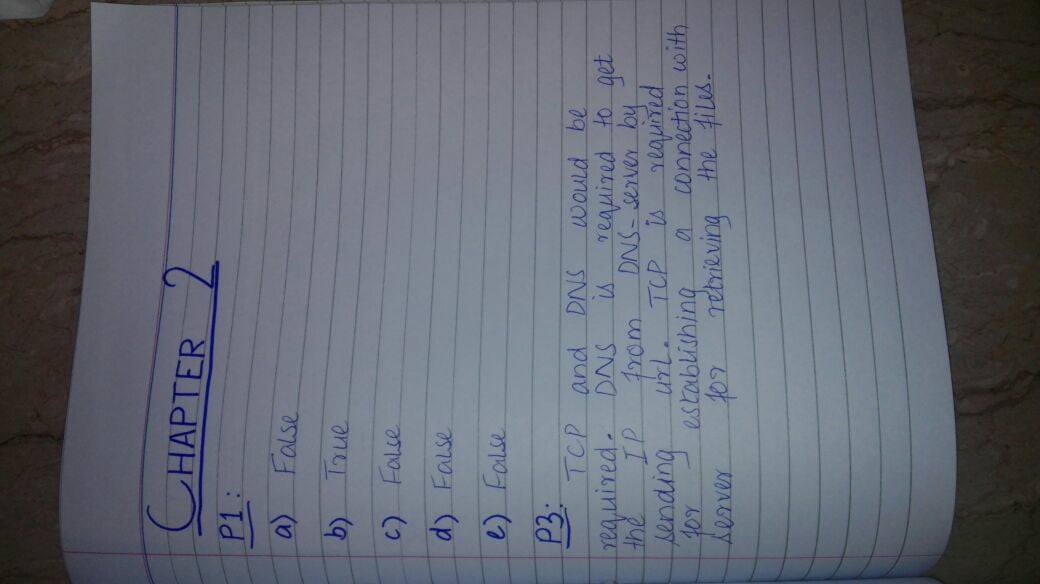 CHAPTER 2
P1:
a) False
b) True
c) False
d) False
e) False
P3:
TCP and DNS would be
required. DNS is required to get
the IP from DNS-server by
sending url. TCP is required
for establishing a connection with
server for retrieving the files.